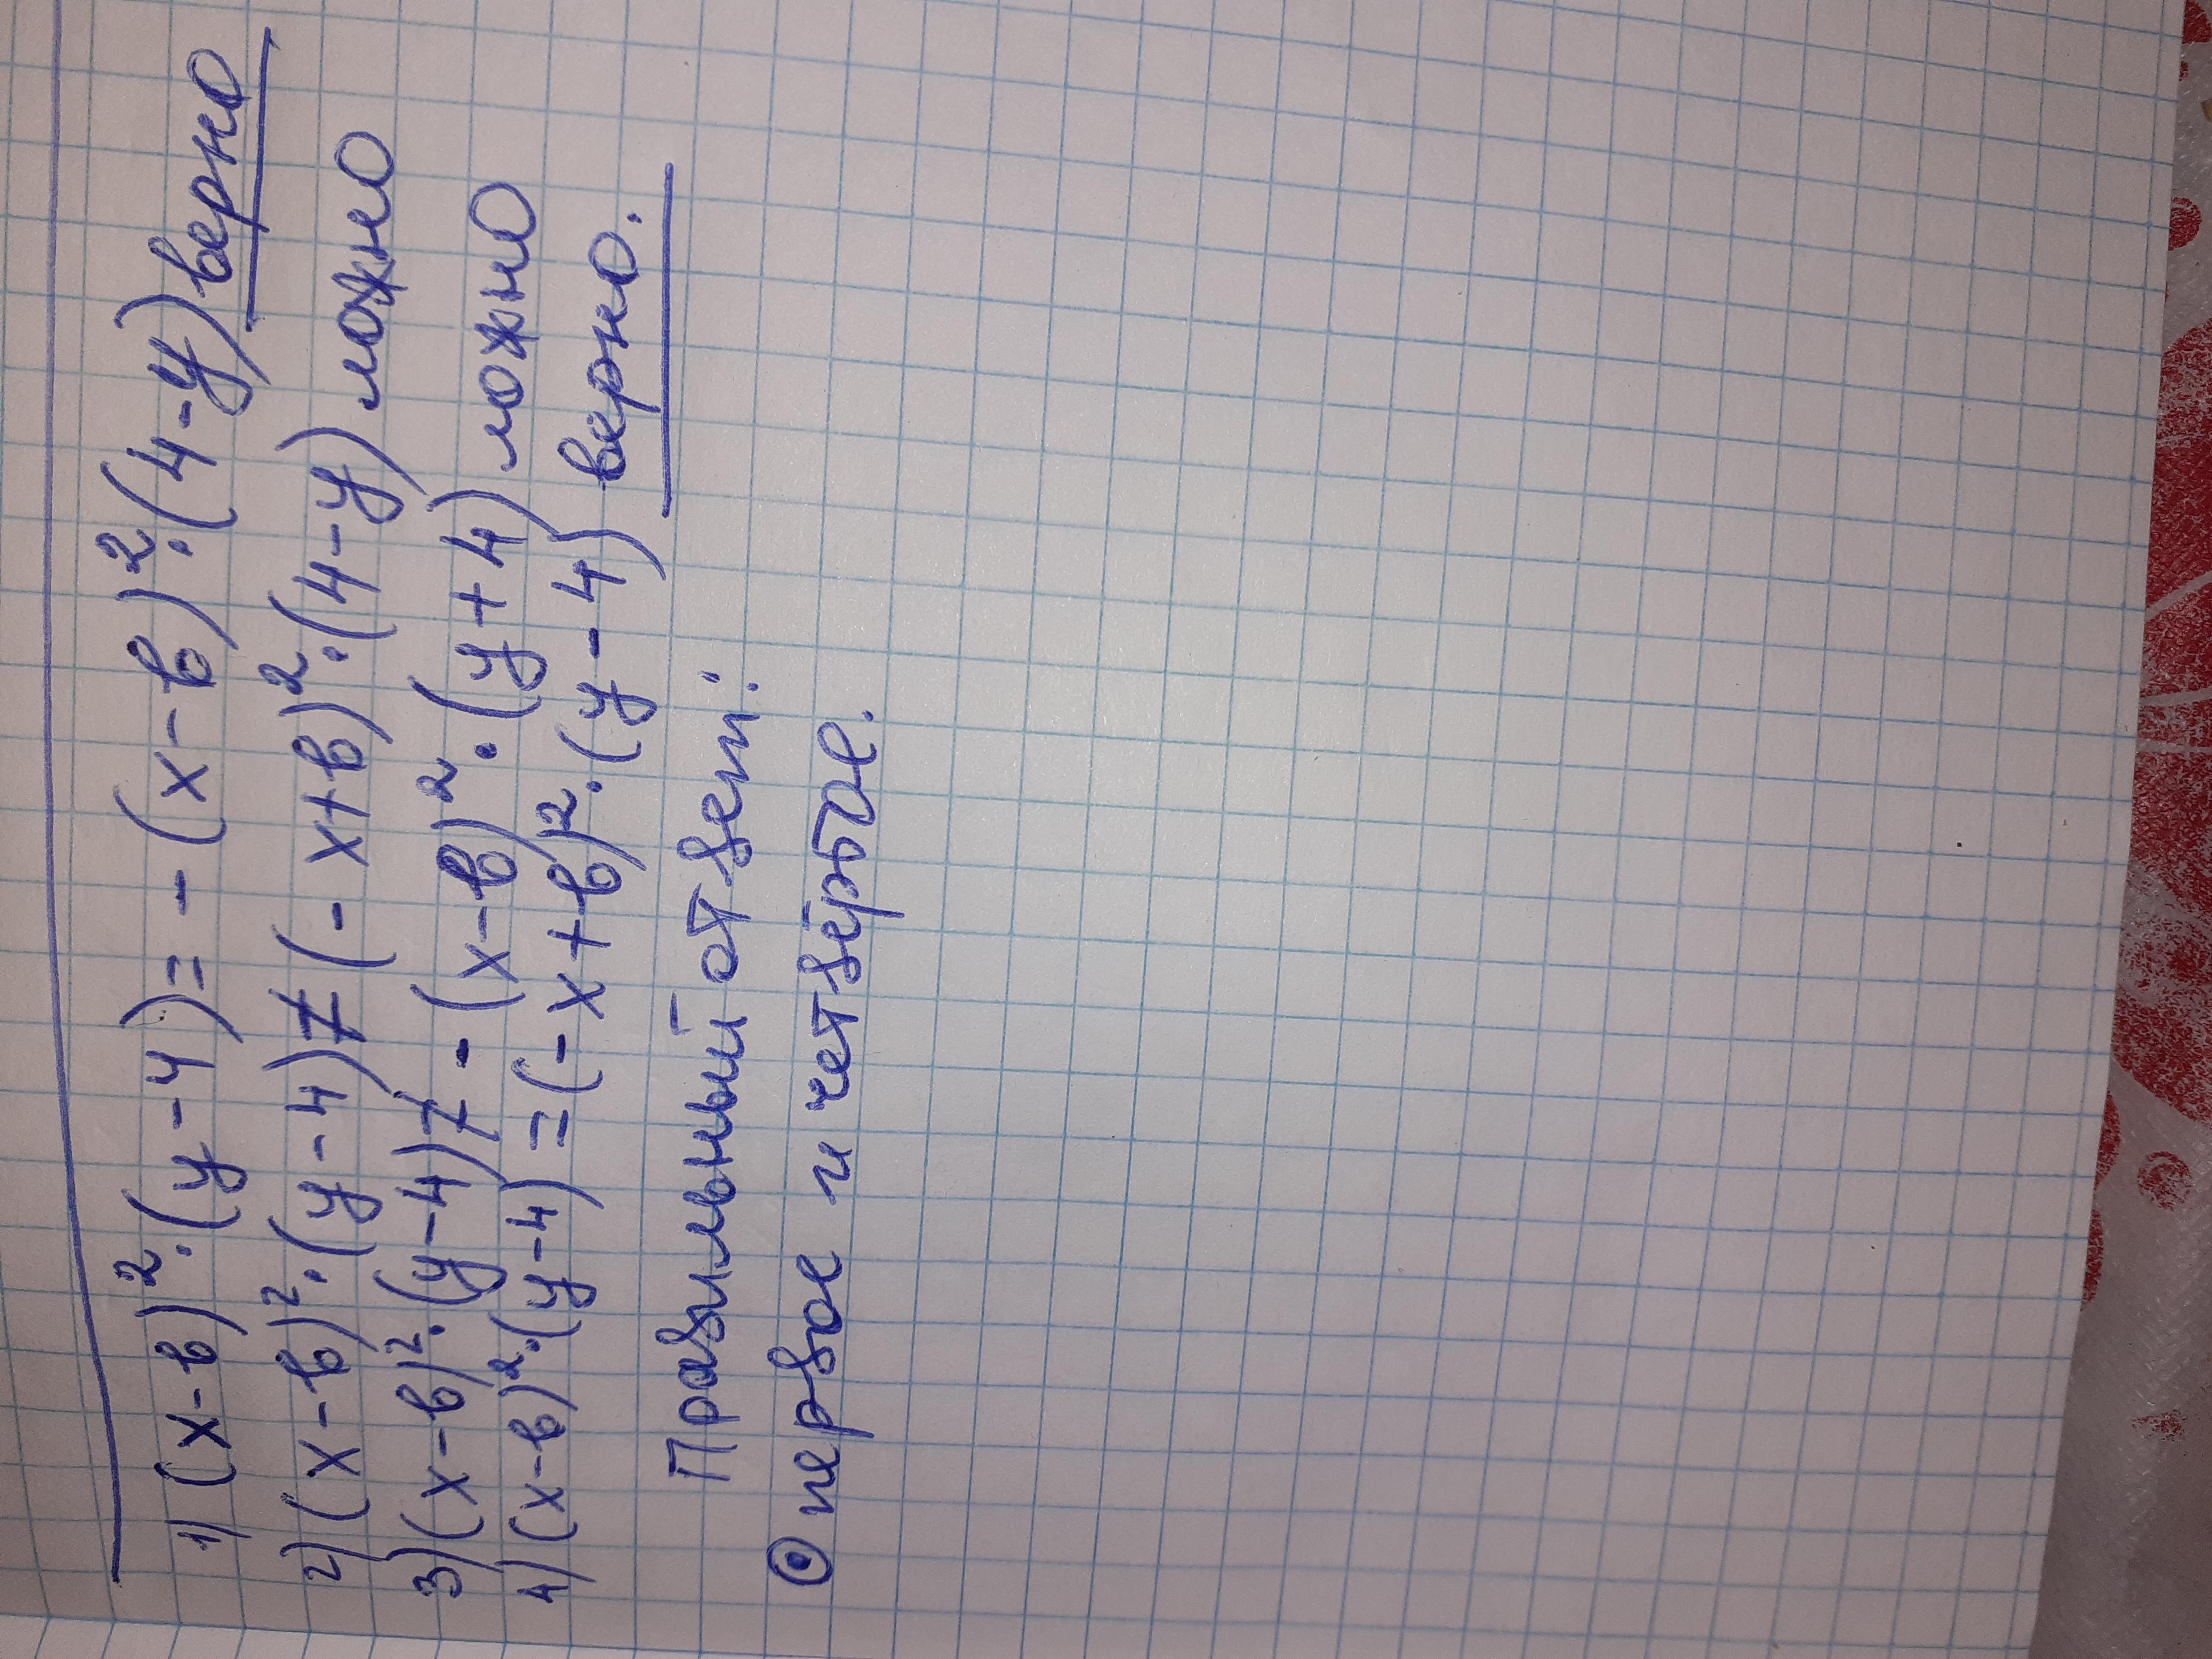 1) (x-в)²·(y-4)= -(x-в)²·(4-y) верно
2) (x-в)²·(y-4)≠(-x+в)²·(4-y) ложно
3) (x-в)²·(y-4)≠ -(x-в)²·(y+4) ложно
4) (x-в)²·(y-4)=(-x+в)²·(y-4) верно.
Правильный ответ:
⊙ первое и четвёртое.